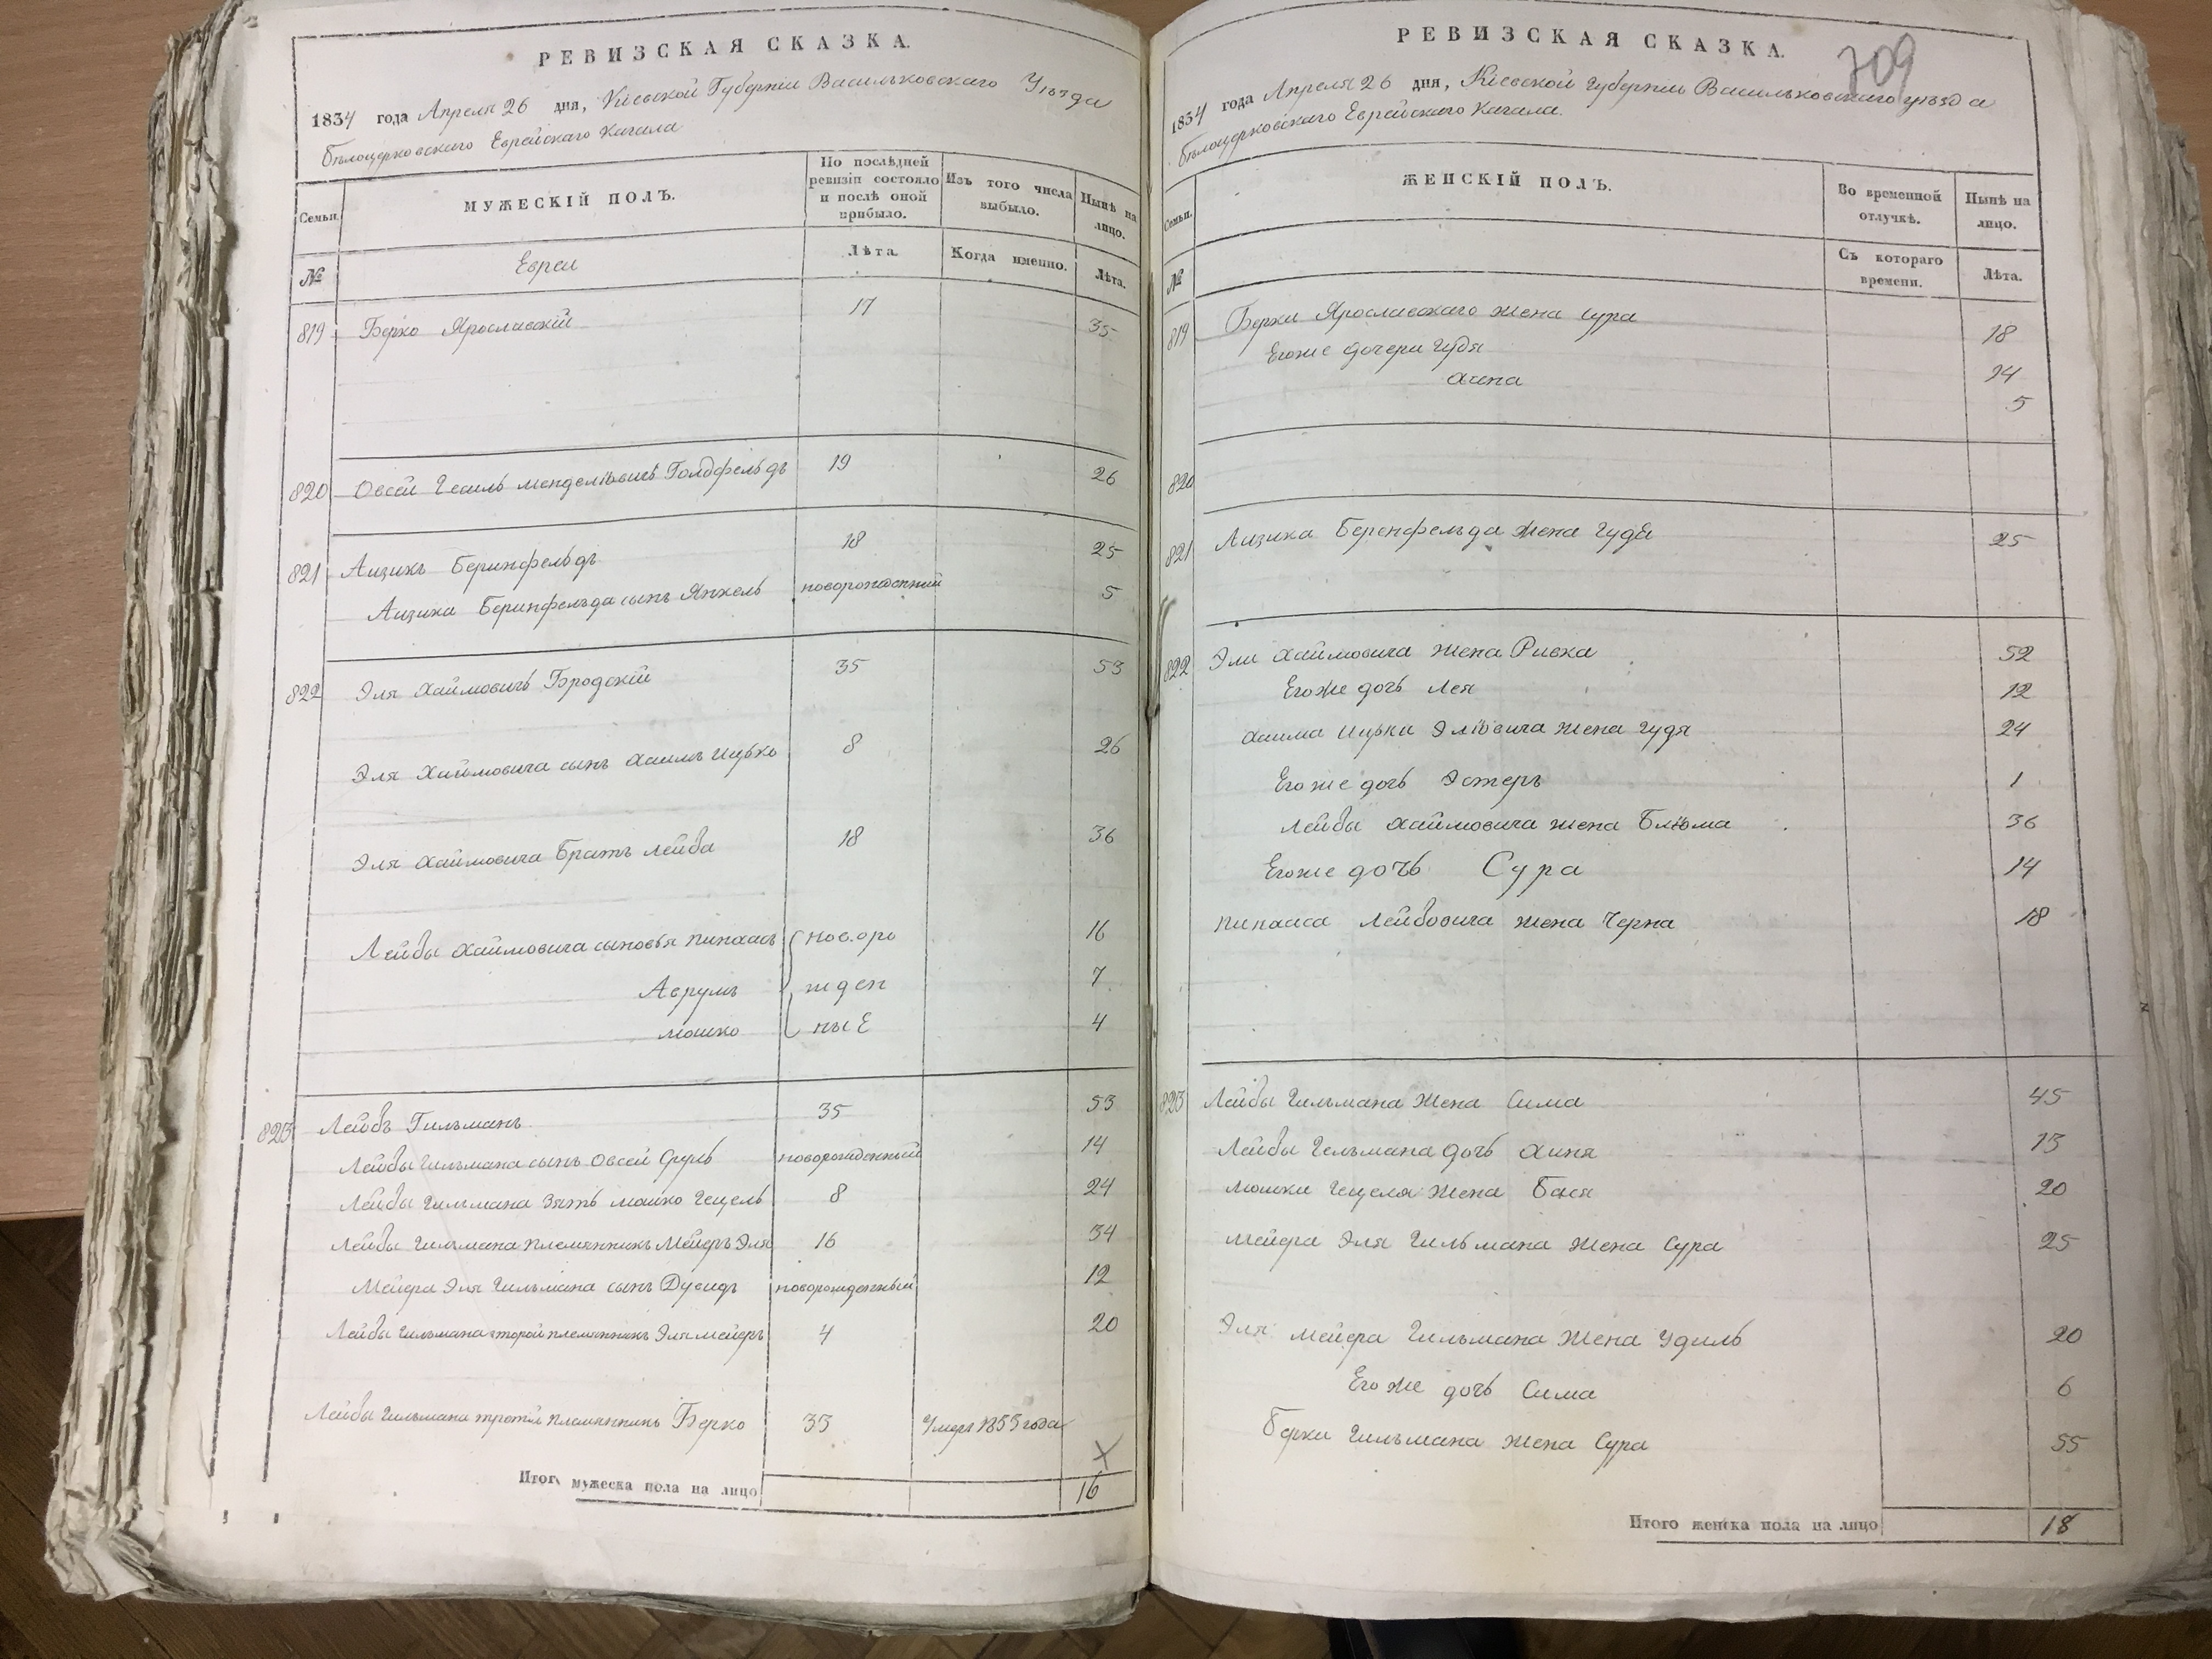 РЕВИЗСКАЯ СКАЗКА.
1834 года Апреля 26 дня, Кіевской Губерніи Васильковскаго Уѣзда
Бѣлоцерковскаго Еврейскаго Кагала
Семьи.
МУЖЕСКІЙ ПОЛЪ.
По послѣдней ревизіи состояло и послѣ оной прибыло.
Изъ того числа выбыло.
Нынѣ на лицо.
№
Евреи
Лѣта.
Когда именно.
Лѣта.
819 Берко Ярославскій 17 35
820 Овсей Гесиль Менделіовичъ Голдфельдъ 19 26
821 Аизикъ Беринфельдъ 18 25
Аизика Беринфельда сынъ Янкель новорожденный 5
822 Эля Хаймовичъ Бродскій 35 53
Эля Хаймовича сынъ Хаимъ Ицько 8 26
Эля Хаймовича Братъ Лейба 18 36
Лейбы Хаймовича сыновья Пинхасъ новоро 16
Аврумъ жден 7
Мошко ные 4
823 Лейбъ Гильманъ 35 53
Лейбы Гильмана сынъ Овсей Сруль новорожденный 14
Лейбы Гильмана зять Мошко Гецель 8 24
Лейбы Гильмана племянникъ Мейеръ Эля 16 34
Мейера Эля Гильмана сынъ Дувидъ новорожденный 12
Лейбы Гильмана второй племянникъ Эля Мейеръ 4 20
Лейбы Гильмана третій племянникъ Берко 33 умеръ 1833 года
Итого мужеска пола на лицо 16
РЕВИЗСКАЯ СКАЗКА.
709
1834 года Апреля 26 дня, Кіевской Губерніи Васильковскаго уѣзда
Бѣлоцерковскаго Еврейскаго Кагала.
Семьи.
ЖЕНСКІЙ ПОЛЪ.
Во временной отлучкѣ.
Нынѣ на лицо.
№
Съ котораго времени.
Лѣта.
819 Берки Ярославскаго жена Сура 18
Егоже дочери Гудя 24
Хина 5
820
821 Аизика Беренфельда жена Гудя 25
822 Эли Хаймовича жена Ривка 52
Егоже дочь Лея 12
Хаима Ицьки Эліовича жена Гудя 24
Егоже дочь Эстеръ 1
Лейбы Хаймовича жена Блюма 36
Егоже дочь Сура 14
Пинхаса Лейбовича жена Черна 18
823 Лейбы Гильмана жена Сима 45
Лейбы Гельмана дочь Хиня 13
Мошки Гецеля жена Бася 20
Мейера Эля Гильмана жена Сура 25
Эля Мейера Гильмана жена Удиль 20
Егоже дочь Сима 6
Берки Гильмана жена Сура 55
Итого женска пола на лицо 18